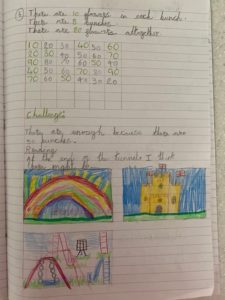 There are 10 flowers in each bunch.
There are 8 bunches.
There are 80 flowers altogether.
10 20 30 40 50 60
20 30 40 50 60 70
90 80 70 60 50 40
40 50 60 70 80 90
70 60 50 40 30 20
Challenge
because there are
50 bunches.
Reading
At the end of the tunnels I think
there might be